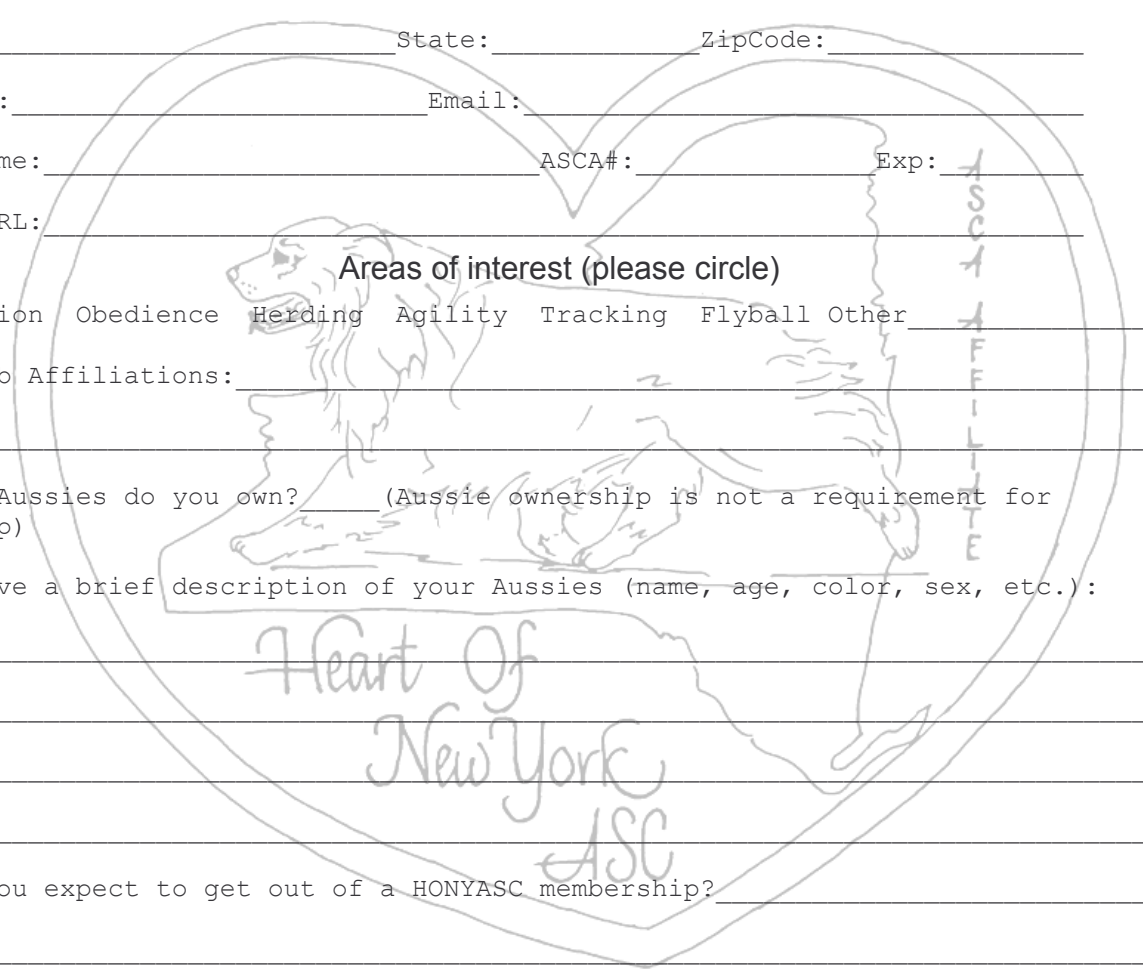 State:_____________ZipCode:________________
:__________________________Email:___________________________________
me:_______________________________ASCA#:_______________Exp:_________
RL:_________________________________________________________________
Areas of interest (please circle)
ion Obedience Herding Agility Tracking Flyball Other_______________
o Affiliations:_________________________________________________________
Aussies do you own?_____(Aussie ownership is not a requirement for
p)
ve a brief description of your Aussies (name, age, color, sex, etc.):
ou expect to get out of a HONYASC membership?___________________________
ASCA AFFILIATE
Heart Of
New York
ASC